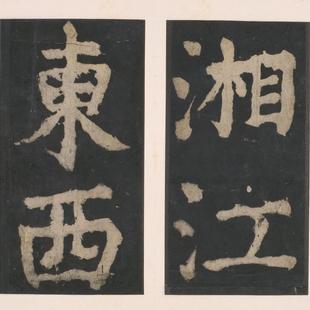 湘江
東西